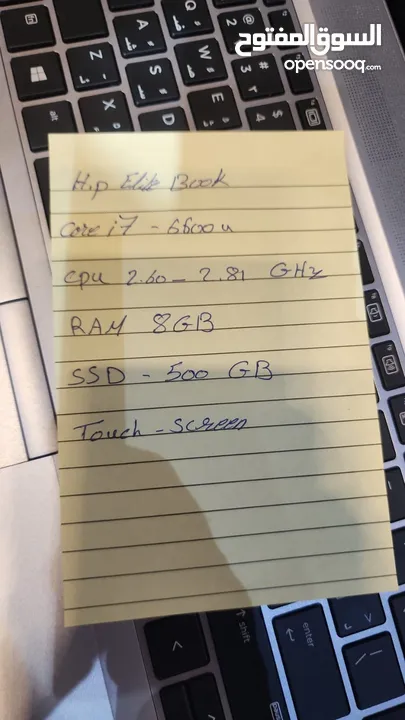 السوق المفتوح
opensooq.com
H.p Elite Book
Core i7 - 6600u
cpu 2.60 - 2.81 GHz
RAM 8GB
SSD - 500 GB
Touch - screen
fn
alt
Q
W
E
A
S
D
Z
X
2
3
4
@
#
$
shift
enter